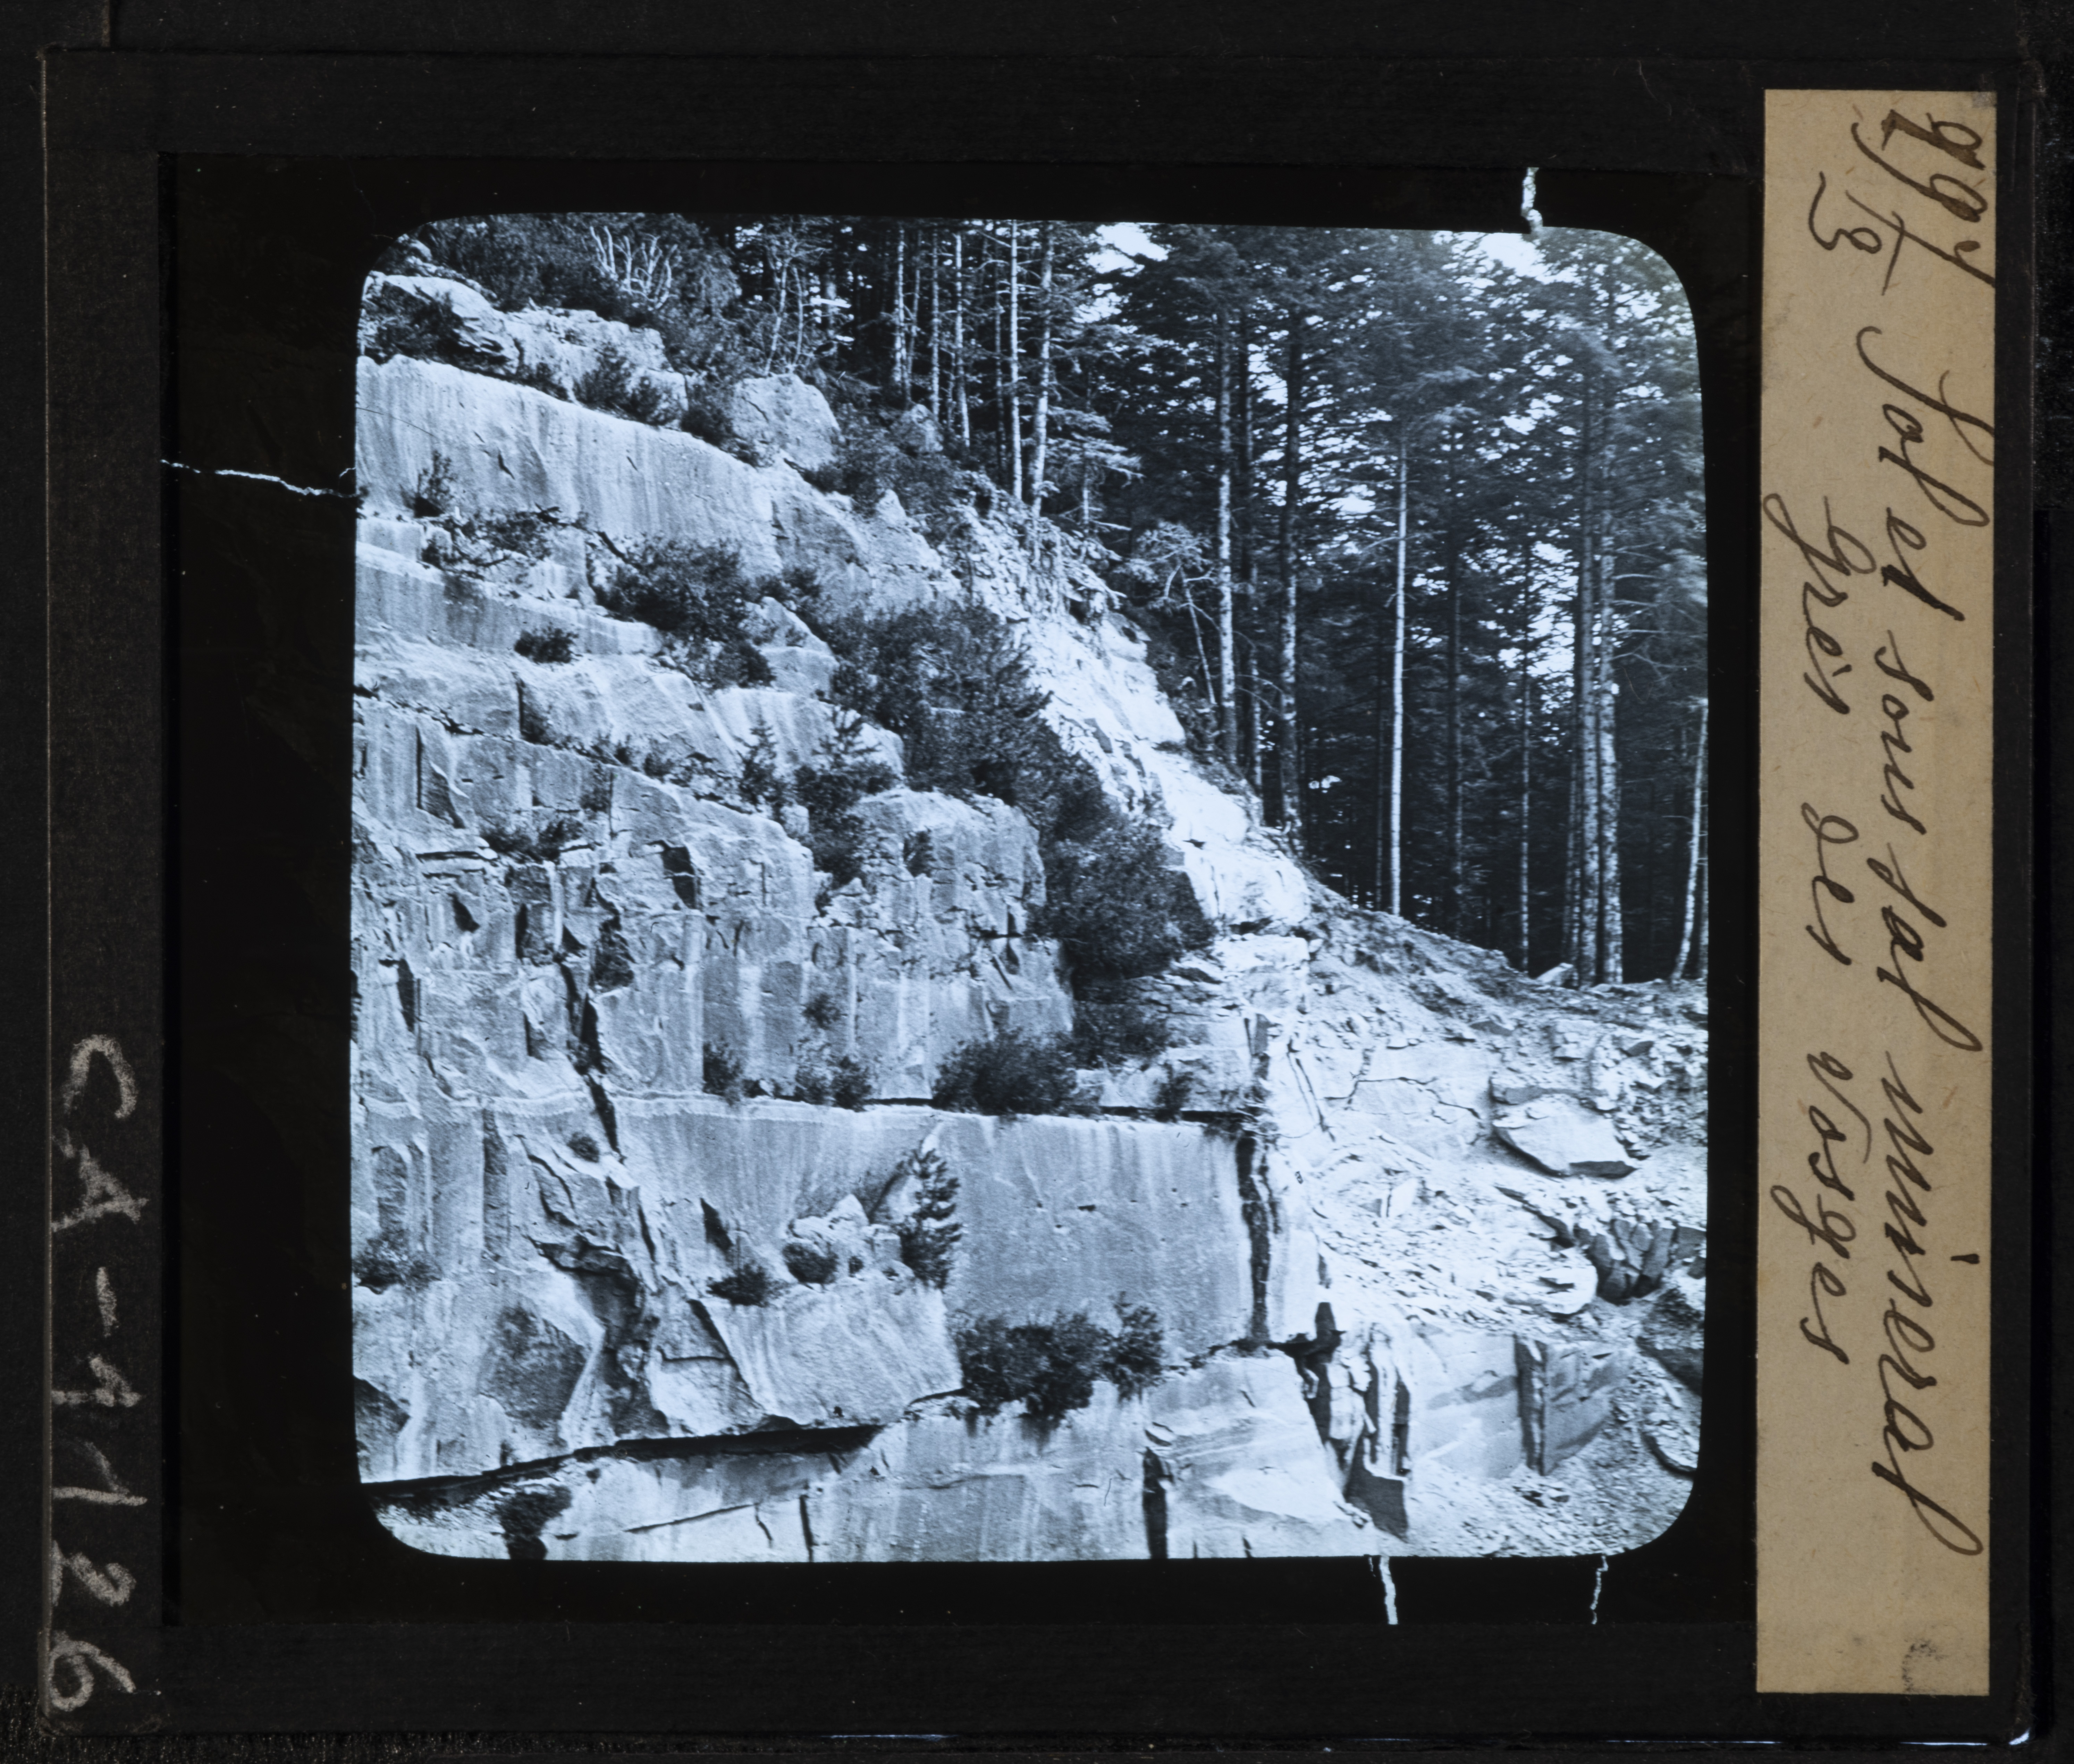 Sol et sous sol mineral
Grès des Vosges
CA-1126